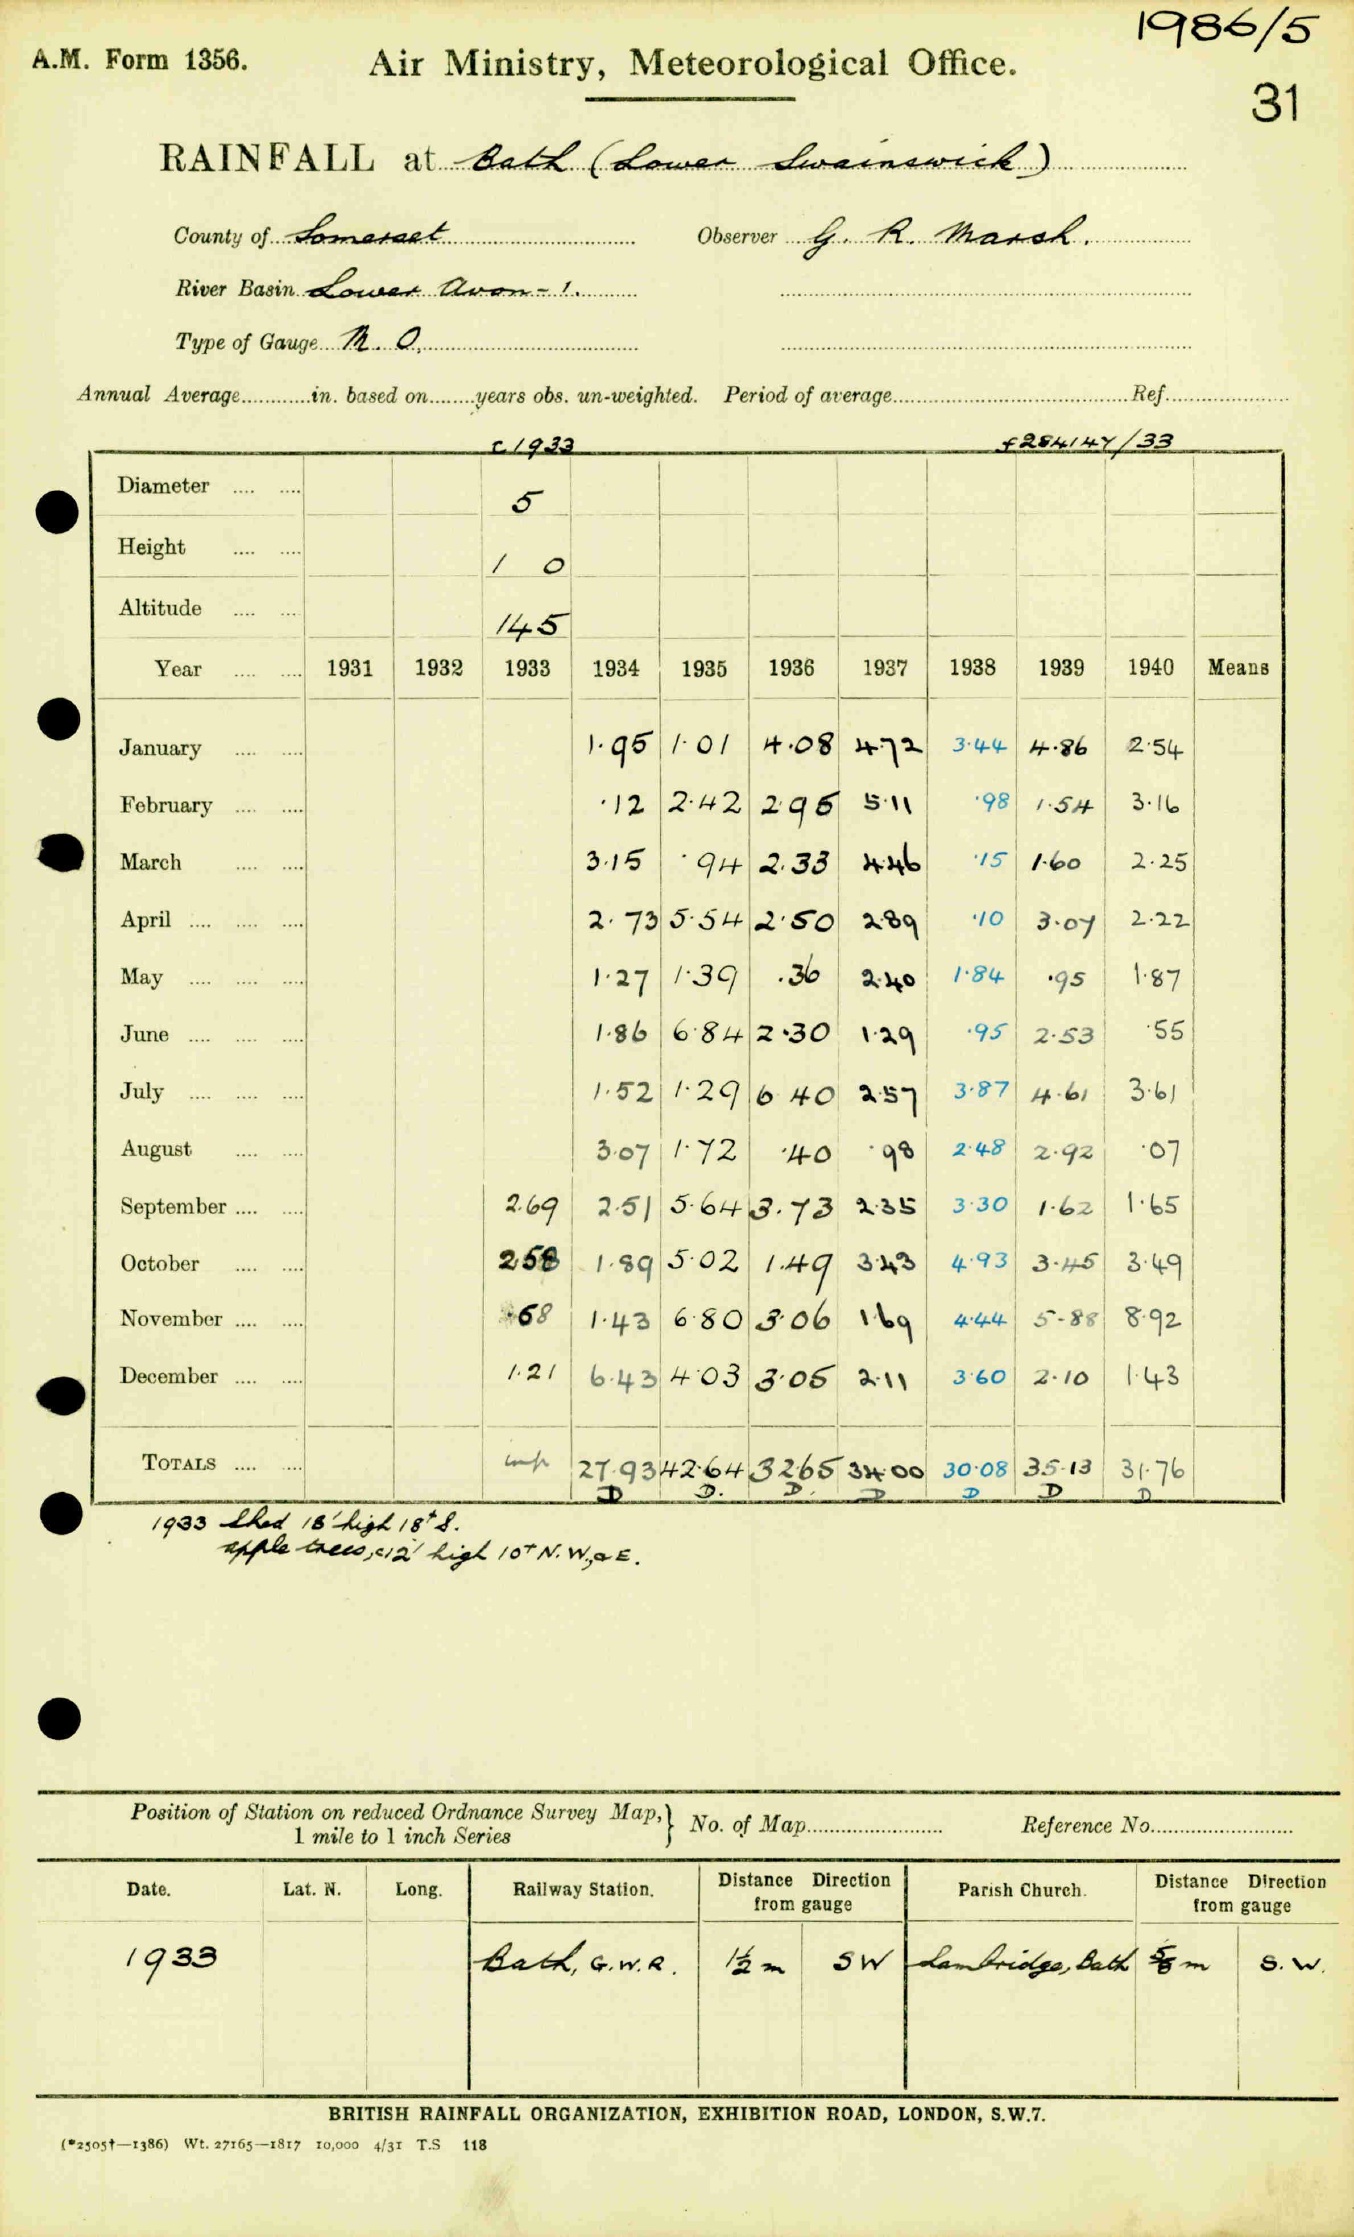 1986/5
A.M. Form 1356. Air Ministry, Meteorological Office.
31
RAINFALL at Bath (Lower Swainswick)
County of Somerset Observer G. R. Marsh.
River Basin Lower Avon - 1.
Type of Gauge M. O.
Annual Average............in. based on........years obs. un-weighted. Period of average........................................Ref.....................
c 1933 f284147/33
Diameter .... .... 5
Height .... .... 1 0
Altitude .... .... 145
Year .... .... 1931 1932 1933 1934 1935 1936 1937 1938 1939 1940 Means
January .... .... 1.95 1.01 4.08 4.72 3.44 4.86 2.54
February .... .... .12 2.42 2.95 5.11 .98 1.54 3.16
March .... .... 3.15 .94 2.33 4.46 .15 1.60 2.25
April .... .... .... 2.73 5.54 2.50 2.89 .10 3.07 2.22
May .... .... .... 1.27 1.39 .36 2.40 1.84 .95 1.87
June .... .... .... 1.86 6.84 2.30 1.29 .95 2.53 .55
July .... .... .... 1.52 1.29 6.40 2.57 3.87 4.61 3.61
August .... .... 3.07 1.72 .40 .98 2.48 2.92 .07
September .... .... 2.69 2.51 5.64 3.73 2.35 3.30 1.62 1.65
October .... .... 2.58 1.89 5.02 1.49 3.43 4.93 3.45 3.49
November .... .... .68 1.43 6.80 3.06 1.69 4.44 5.88 8.92
December .... .... 1.21 6.43 4.03 3.05 2.11 3.60 2.10 1.43
TOTALS .... .... imp 27.93 42.64 32.65 34.00 30.08 35.13 31.76
D D. D. D D D D
1933 Shed 13' high 18+ S.
apple trees, c12' high 10+ N. W, & E.
Position of Station on reduced Ordnance Survey Map, } No. of Map......................... Reference No..........................
1 mile to 1 inch Series
Date. Lat. N. Long. Railway Station. Distance Direction from gauge Parish Church. Distance Direction from gauge
1933 Bath, G.W.R. 1½ m SW Lambridge, Bath ⅝ m S. W.
BRITISH RAINFALL ORGANIZATION, EXHIBITION ROAD, LONDON, S.W.7.
(*2505†—1386) Wt. 27165—1817 10,000 4/31 T.S 118